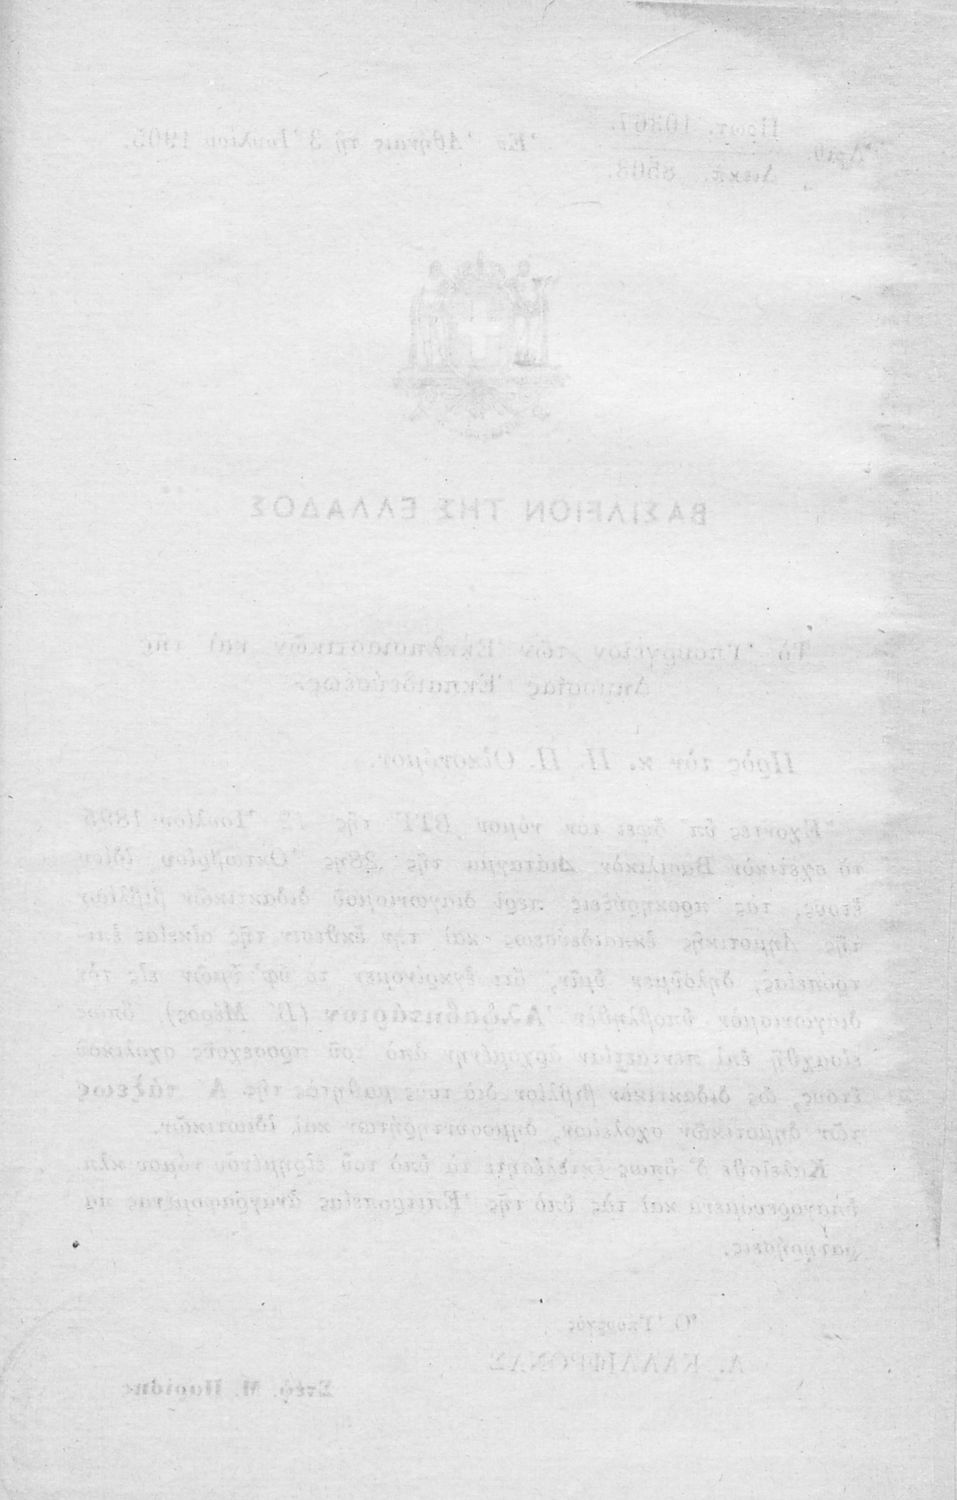 Ἀριθ. Πρωτ. 10367. Διεκπ. 8503.
Ἐν Ἀθήναις τῇ 3 Ἰουλίου 1905.
ΒΑΣΙΛΕΙΟΝ ΤΗΣ ΕΛΛΑΔΟΣ
Τὸ Ὑπουργεῖον τῶν Ἐκκλησιαστικῶν καὶ τῆς
Δημοσίας Ἐκπαιδεύσεως.
Πρὸς τὸν κ. Π. Π. Οἰκονόμον.
Ἔχοντες ὑπ' ὄψει τὸν νόμον ΒΤΓ΄ τῆς 12 Ἰουλίου 1895
τὸ σχετικὸν Βασιλικὸν Διάταγμα τῆς 28ης Ὀκτωβρίου ἰδίου
ἔτους, τὰς προκηρύξεις περὶ διαγωνισμοῦ διδακτικῶν βιβλίων
τῆς Δημοτικῆς ἐκπαιδεύσεως καὶ τὴν ἔκθεσιν τῆς οἰκείας ἐπι-
τροπείας, δηλοῦμεν ὑμῖν, ὅτι ἐγκρίνομεν τὸ ὑφ' ὑμῶν εἰς τὸν
διαγωνισμὸν ὑποβληθὲν Ἀλφαβητάριον (Β΄ Μέρος), ὅπως
εἰσαχθῇ ἐπὶ πενταετίαν ἀρχομένην ἀπὸ τοῦ προσεχοῦς σχολικοῦ
ἔτους, ὡς διδακτικὸν βιβλίον διὰ τοὺς μαθητὰς τῆς Α΄ τάξεως
τῶν δημοτικῶν σχολείων, δημοσυντηρήτων καὶ ἰδιωτικῶν.
Καλεῖσθε δ' ὅπως ἐκτελέσητε τὰ ὑπὸ τοῦ εἰρημένου νόμου κλπ.
ὑπαγορευόμενα καὶ τὰς ὑπὸ τῆς Ἐπιτροπείας ἀναγραφομένας πα
ρατηρήσεις.
Ὁ Ὑπουργὸς
Α. ΚΑΛΛΙΦΡΟΝΑΣ
Στέφ. Μ. Παρίσης